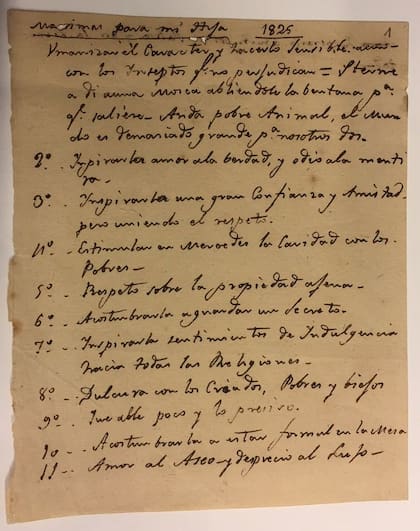 Maximas para mi Hija 1825 1
Umanizar el Caracter, y hacerlo sensible aun
con los Insectos qe. no perjudican = Sterne
a di auna Mosca abriendole la bentana pa.
qe. saliese. Anda pobre Animal, el Mun
do es demaciado grande pa. nosotros dos.
2o. Inspirarla amor ala berdad, y odio ala menti
ra.
3o. Inspirarla una gran Confianza y Amistad
pero uniendo el respeto.
4o. Estimular en Mercedes la Caridad con los
Pobres—
5o. Respeto sobre la propiedad ajena.
6o. Acostumbrarla aguardar un secreto.
7o. Inspirarla sentimientos de Indulgencia
hacia todas las Religiones.
8o. Dulzura con los Criados, Pobres y biejos
9o. Que able poco y lo preciso.
10 Acostumbrarla a estar formal en la Mesa
11 Amor al Aseo y desprecio al Lujo—